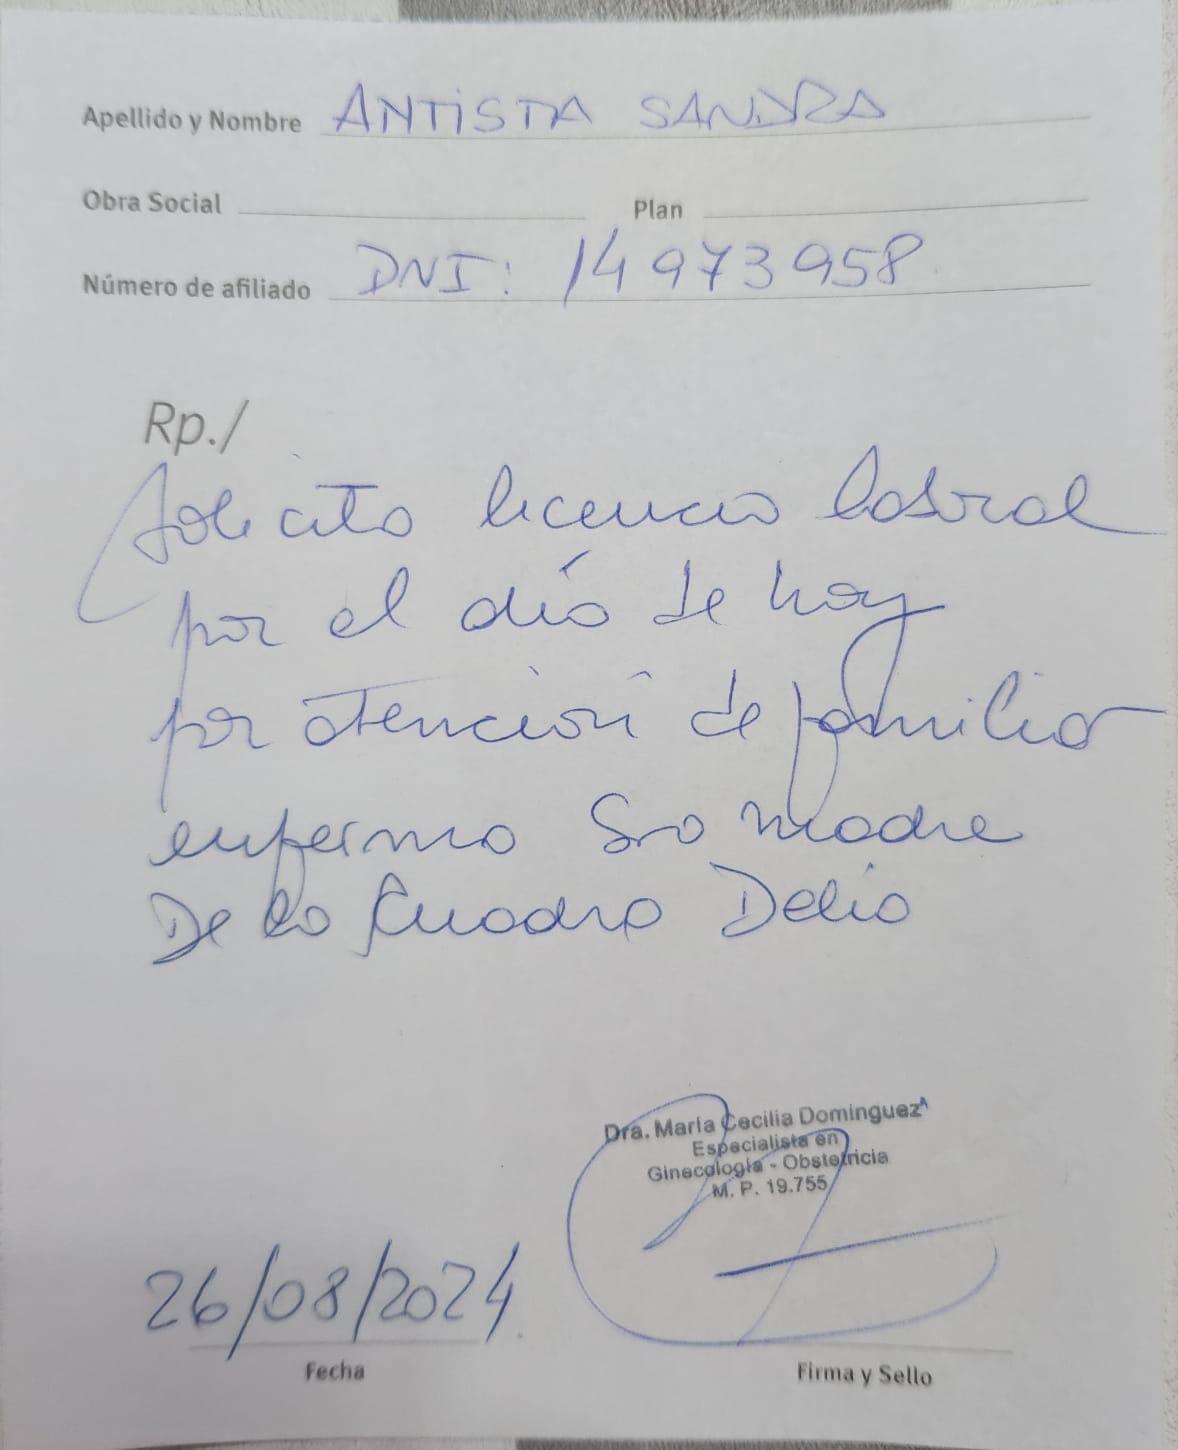 Apellido y Nombre ANTISTA SANDRA
Obra Social Plan
Número de afiliado DNI: 14973958
Rp./
Solicito licencia laboral
por el día de hoy
por atención de familia
enfermo Sra madre
De la Cuadra Delia
Dra. María Cecilia Dominguez
Especialista en
Ginecología - Obstetricia
M. P. 19.755
26/08/2024
Fecha Firma y Sello